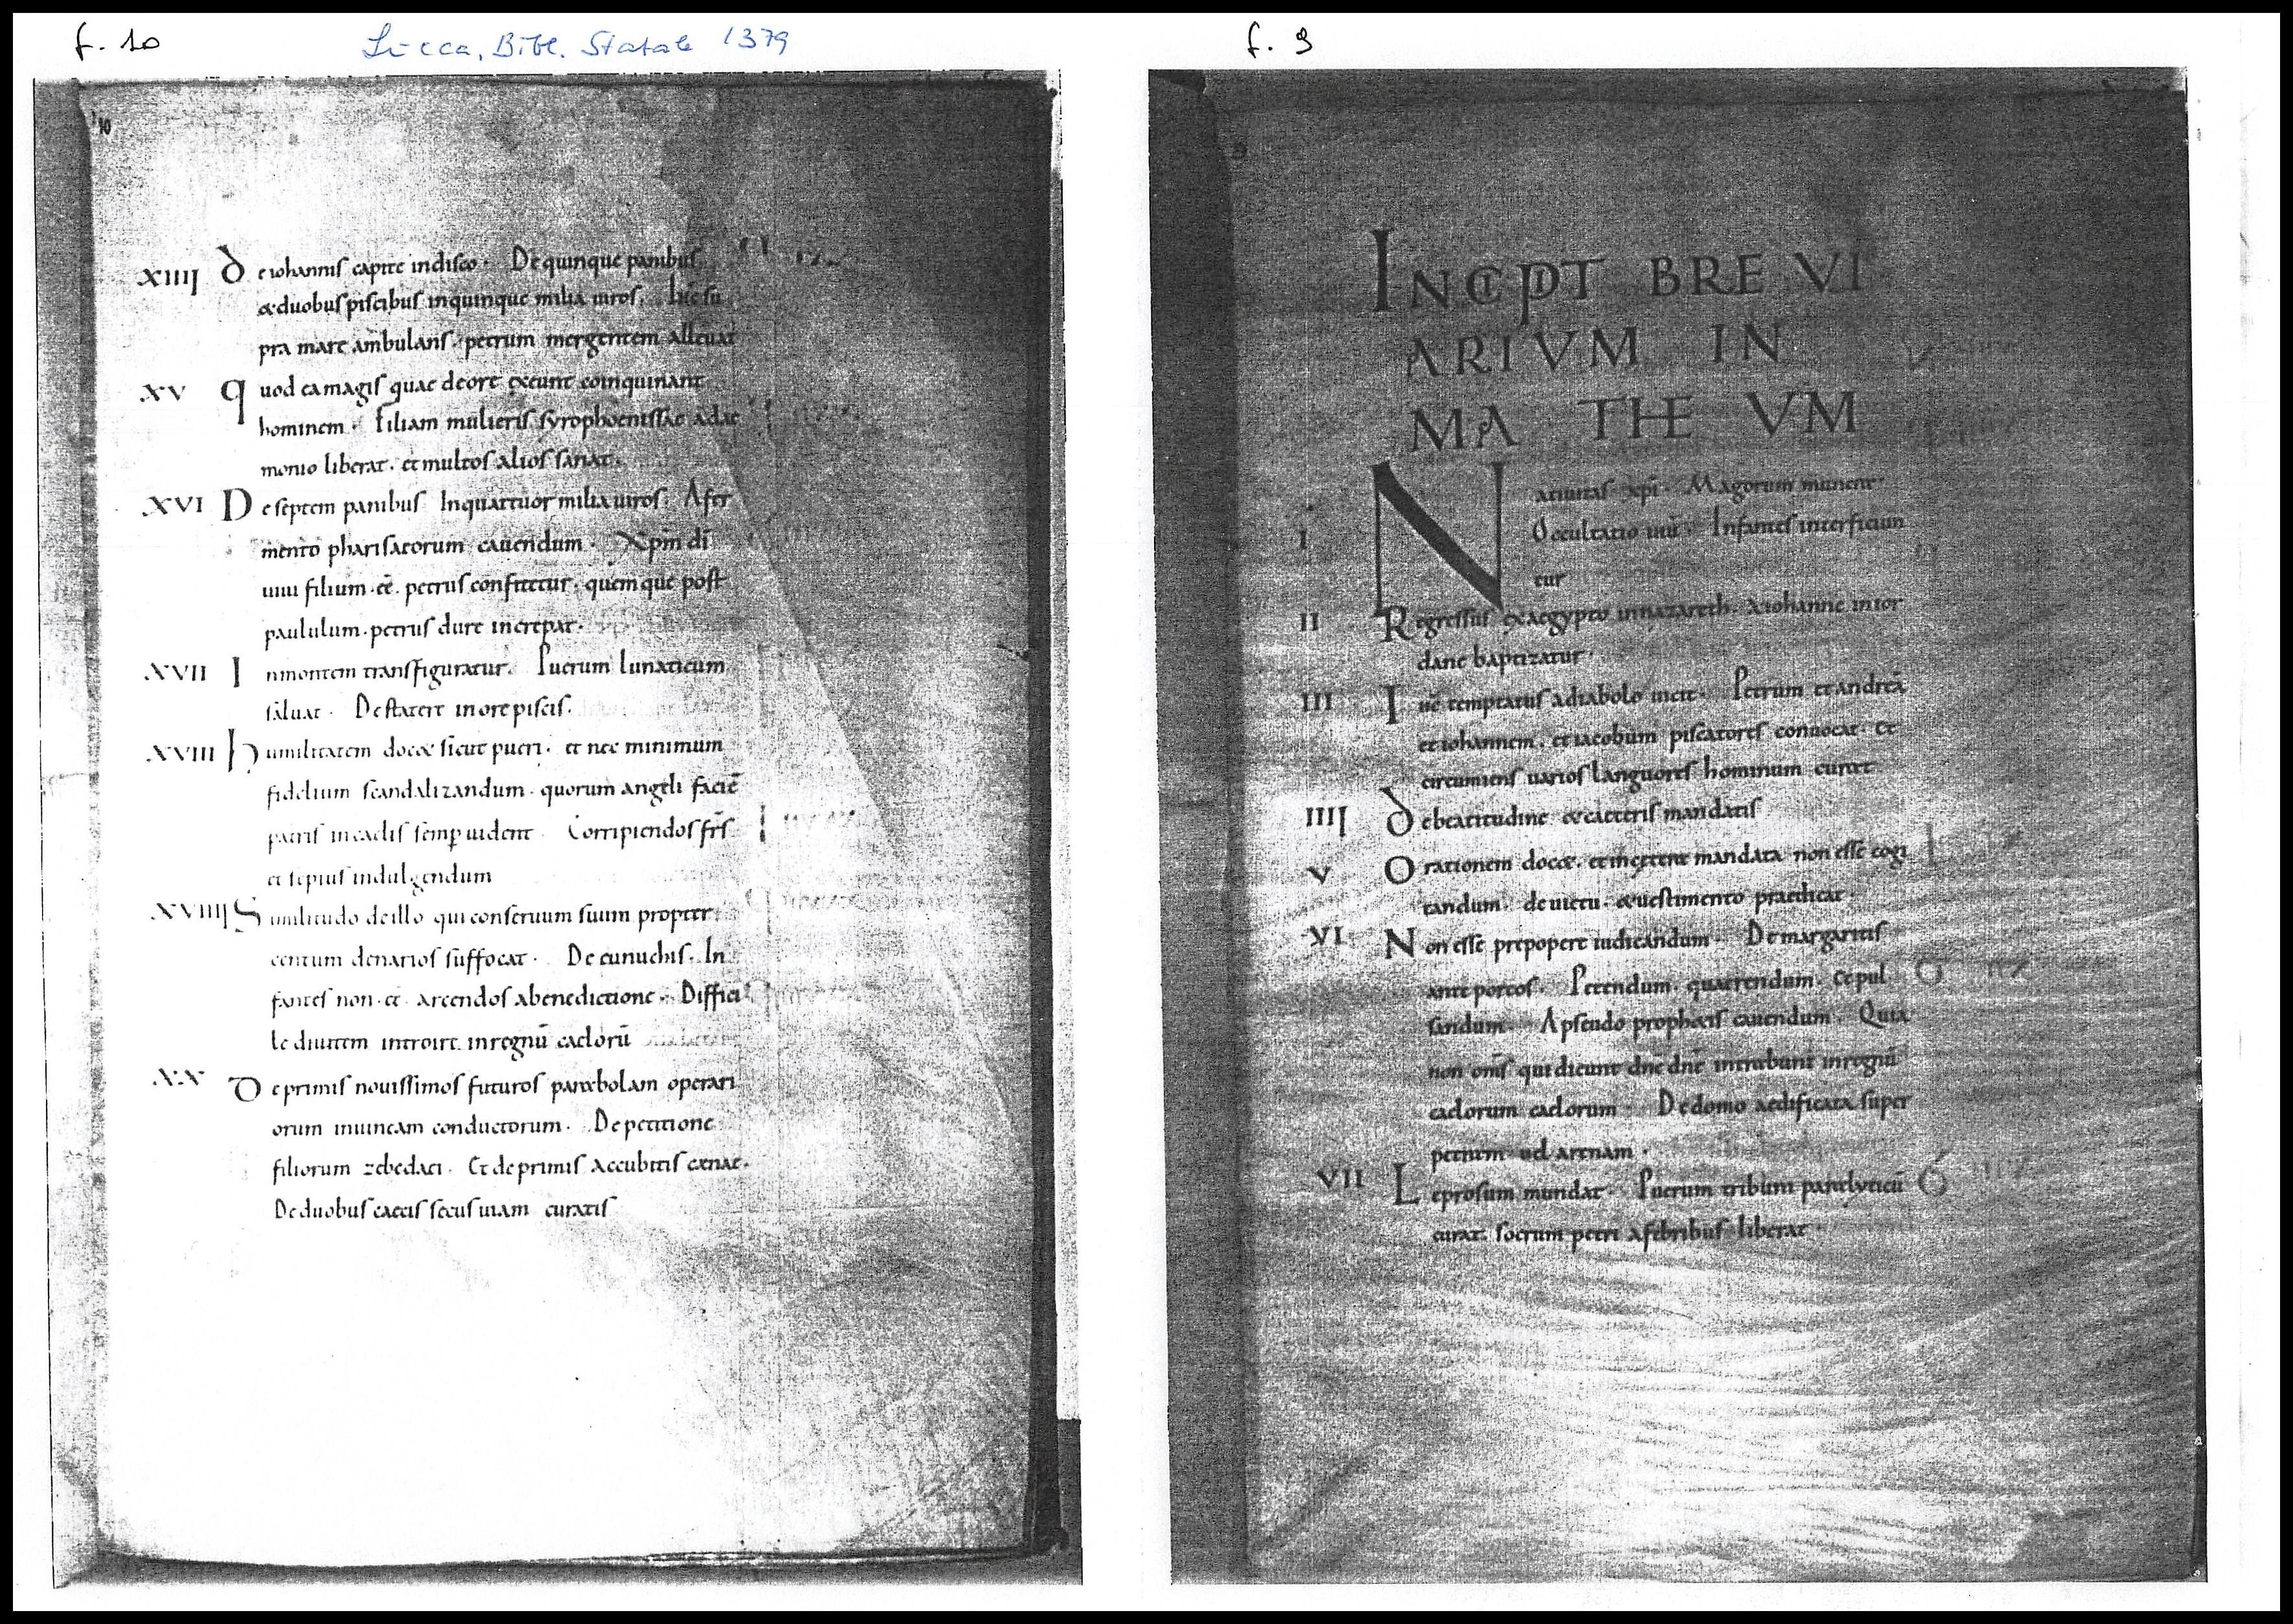 f. 10
Lucca, Bibl. Statale 1379
10
XIIII De iohannis capite in disco. De quinque panibus
& duobus piscibus in quinque milia uiros. Ihc su
pra mare ambulans. petrum mergentem alleuat
XV Quod ea magis quae de ore exeunt coinquinant
hominem. Filiam mulieris syrophoenissae a dae
monio liberat. et multos alios sanat.
XVI De septem panibus In quattuor milia uiros. A fer
mento pharisaeorum cauendum. Xpm di
uiui filium. eē. petrus confitetur. quemque post
paululum. petrus dure increpat.
XVII In montem transfiguratur. Puerum lunaticum
saluat. De statere in ore piscis.
XVIII Humilitatem doc& sicut pueri. et nec minimum
fidelium scandalizandum. quorum angeli faciē
patris in caelis semp uident. Corripiendos frs
et sepius indulgendum
XVIIII Similitudo de illo qui conseruum suum propter
centum denarios suffocat. De eunuchis. In
fantes non. eē arcendos a benedictione. Diffici
le diuitem introire in regnū caelorū
XX De primis nouissimos futuros parabolam operari
orum in uineam conductorum. De petitione
filiorum zebedaei. Et de primis accubitis cenae.
De duobus caecis secus uiam curatis
f. 9
9
INCIPIT BREVI
ARIVM IN
MATHEVM
I Natiuitas xpi. Magorum munera.
Occultatio eius. Infantes interficiun
tur
II Regressus ex aegypto in nazareth. A iohanne in ior
dane baptizatur.
III Ihc temptatus a diabolo uicit. Petrum et andreā
et iohannem. et iacobum piscatores conuocat. Et
circumiens uarios languores hominum curat
IIII De beatitudine & caeteris mandatis
V Orationem doc&. et inserens mandata non esse cogi
tandum. de uictu. & uestimento praedicat.
VI Non esse prepopere iudicandum. De margaritis
ante porcos. Petendum. quaerendum. et pul
sandum. A pseudo prophetis cauendum. Quia
non oms qui dicunt dne dne intrabunt in regnū
caelorum caelorum. De domo aedificata super
petram uel arenam.
VII Leprosum mundat. Puerum tribuni paralyticū
curat. socrum petri a febribus liberat.